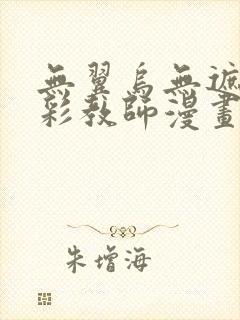 無翼烏無遮
彩教師漫畫
朱增海